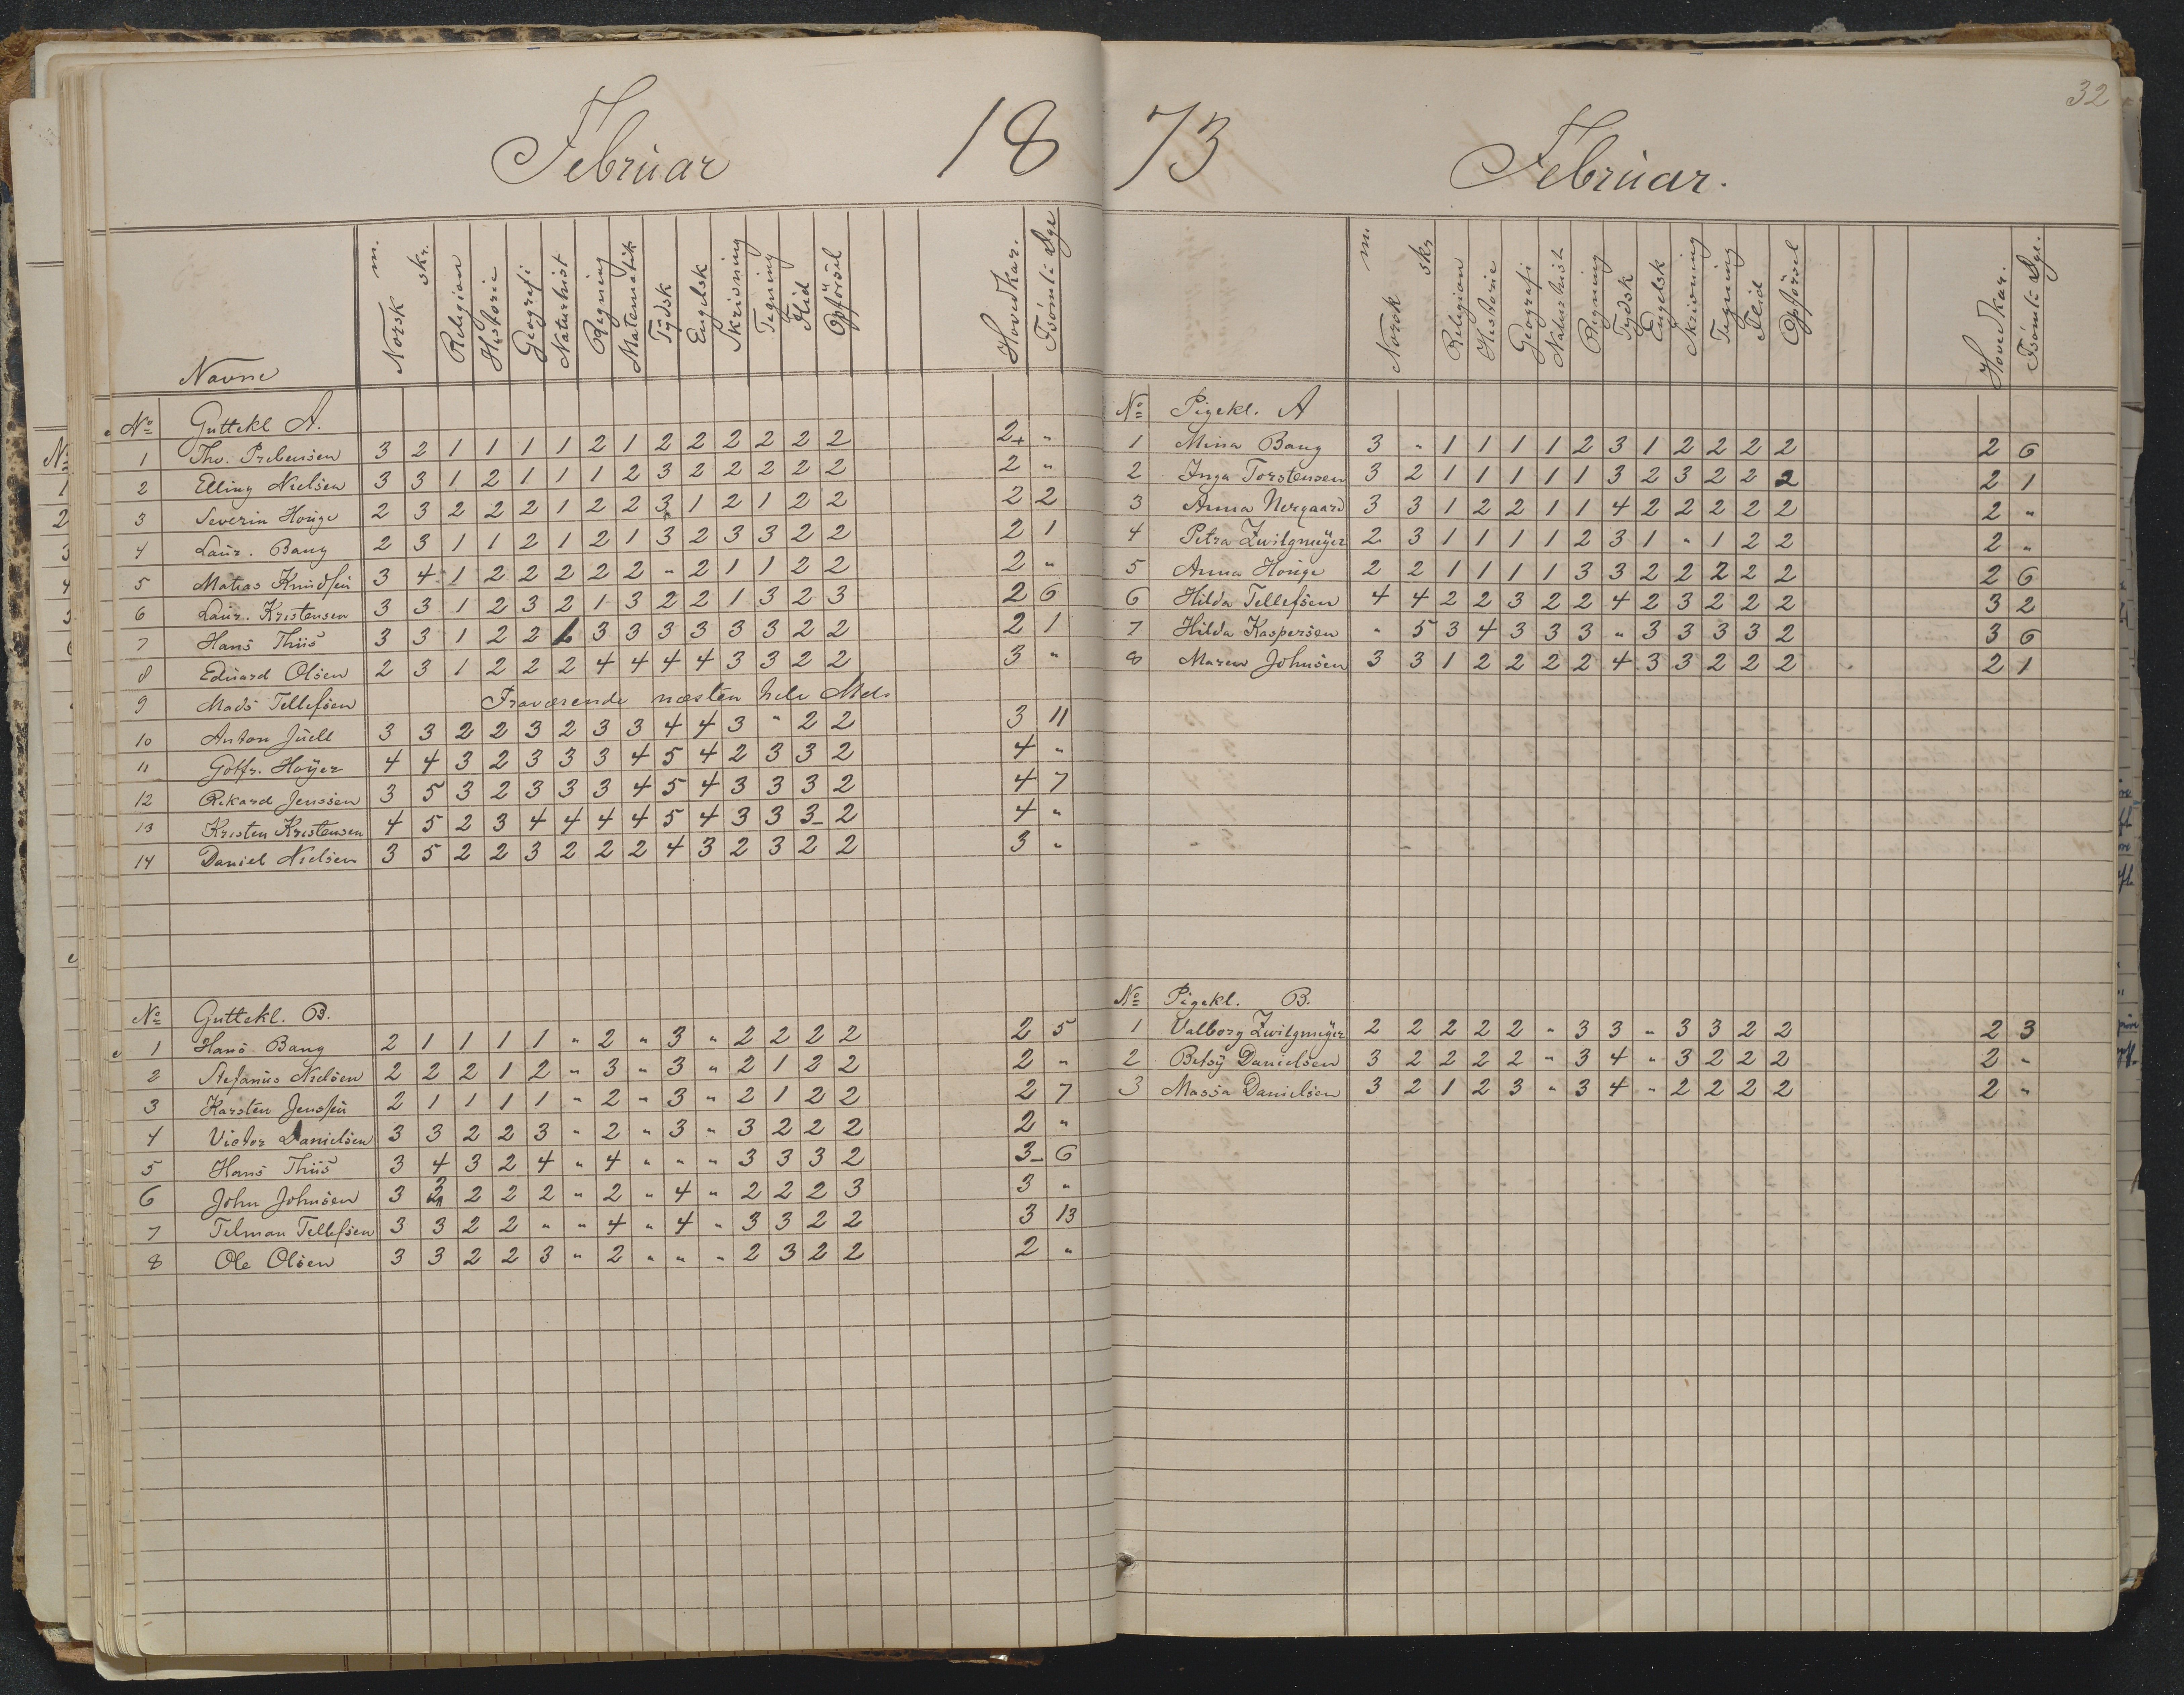 32
Februar 18
Navne Norsk m. skr. Religion Historie Geografi Naturhist Regning Matematik Tydsk Engelsk Skrivning Tegning Flid Opförsel Hovedkar. Fsömte Dge
No Guttekl A.
1 Thv. Prebensen 3 2 1 1 1 1 2 1 2 2 2 2 2 2 2+ "
2 Elling Nielsen 3 3 1 2 1 1 1 2 3 2 2 2 2 2 2 "
3 Severin Houge 2 3 2 2 2 1 2 2 3 1 2 1 2 2 2 2
4 Laur. Bang 2 3 1 1 2 1 2 1 3 2 3 3 2 2 2 1
5 Matias Knudsen 3 4 1 2 2 2 2 2 - 2 1 1 2 2 2 "
6 Laur. Kristensen 3 3 1 2 3 2 1 3 2 2 1 3 2 3 2 6
7 Hans Thiis 3 3 1 2 2 1 3 3 3 3 3 3 2 2 2 1
8 Eduard Olsen 2 3 1 2 2 2 4 4 4 4 3 3 2 2 3 "
9 Mads Tellefsen Fraværende næsten hele Mds
10 Anton Juell 3 3 2 2 3 2 3 3 4 4 3 " 2 2 3 11
11 Gotfr. Høyer 4 4 3 2 3 3 3 4 5 4 2 3 3 2 4 "
12 Rikard Jenssen 3 5 3 2 3 3 3 4 5 4 3 3 3 2 4 7
13 Kristen Kristensen 4 5 2 3 4 4 4 4 5 4 3 3 3- 2 4 "
14 Daniel Nielsen 3 5 2 2 3 2 2 2 4 3 2 3 2 2 3 "
No Guttekl. B.
1 Hans Bang 2 1 1 1 1 " 2 " 3 " 2 2 2 2 2 5
2 Stefanus Nielsen 2 2 2 1 2 " 3 " 3 " 2 1 2 2 2 "
3 Karsten Jenssen 2 1 1 1 1 " 2 " 3 " 2 1 2 2 2 7
4 Victor Danielsen 3 3 2 2 3 " 2 " 3 " 3 2 2 2 2 "
5 Hans Thiis 3 4 3 2 4 " 4 " " " 3 3 3 2 3- 6
6 John Johnsen 3 2 2 2 " 2 " 4 " 2 2 2 3 3 "
7 Telman Tellefsen 3 3 2 2 " " 4 " 4 " 3 3 2 2 3 13
8 Ole Olsen 3 3 2 2 3 " 2 " " " 2 3 2 2 2 "
73 Februar.
Norsk m. skr Religion Historie Geografi Naturhist Regning Tydsk Engelsk Skrivning Tegning Flid Opförsel Hovedkar. Fsömte Dge.
No Pigekl. A
1 Mina Bang 3 " 1 1 1 1 2 3 1 2 2 2 2 2 6
2 Inga Torstensen 3 2 1 1 1 1 1 3 2 3 2 2 2 2 1
3 Anna Nergaard 3 3 1 2 2 1 1 4 2 2 2 2 2 2 "
4 Petra Zwilgmeyer 2 3 1 1 1 1 2 3 1 " 1 2 2 2 "
5 Anna Houge 2 2 1 1 1 1 3 3 2 2 2 2 2 2 6
6 Hilda Tellefsen 4 4 2 2 3 2 2 4 2 3 2 2 2 3 2
7 Hilda Kaspersen " 5 3 4 3 3 3 " 3 3 3 3 2 3 6
8 Maren Johnsen 3 3 1 2 2 2 2 4 3 3 2 2 2 2 1
No Pigekl. B.
1 Valborg Zwilgmeyer 2 2 2 2 2 " 3 3 " 3 3 2 2 2 3
2 Betsy Danielsen 3 2 2 2 2 " 3 4 " 3 2 2 2 2 "
3 Massa Danielsen 3 2 1 2 3 " 3 4 " 2 2 2 2 2 "